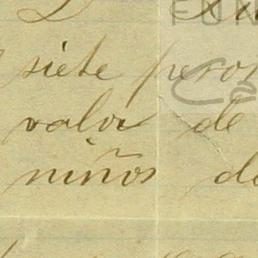 FUN
siete peros
valor de
niños de